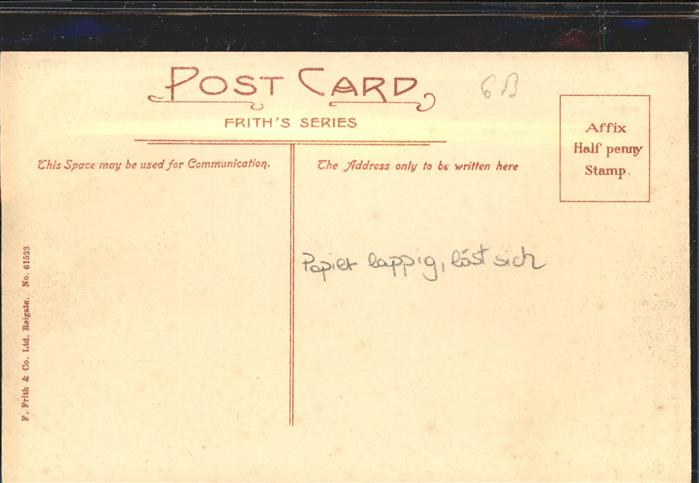 POST CARD
6B
FRITH'S SERIES
This Space may be used for Communication.
The Address only to be written here
Affix
Half penny
Stamp.
Papier lappig, löst sich
F. Frith & Co. Ltd. Reigate. No. 61523